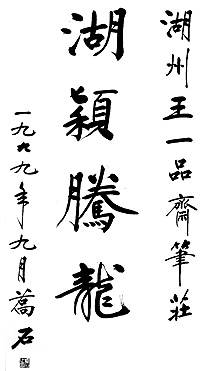 湖州王一品齋筆莊
湖穎騰龍
一九九九年九月喬石